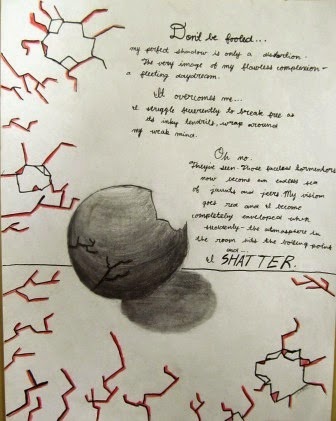 Don't be fooled...
my perfect shadow is only a distortion.
The very image of my flawless complexion-
a fleeting daydream.
It overcomes me...
I struggle fervently to break free as
its inky tendrils, wrap around
my weak mind.
Oh no.
They've seen. Those faceless tormentors
now become an endless sea
of taunts and jeers. My vision
goes red and I become
completely enveloped when
suddenly - the atmosphere in
the room hits the boiling point
and...
I SHATTER.